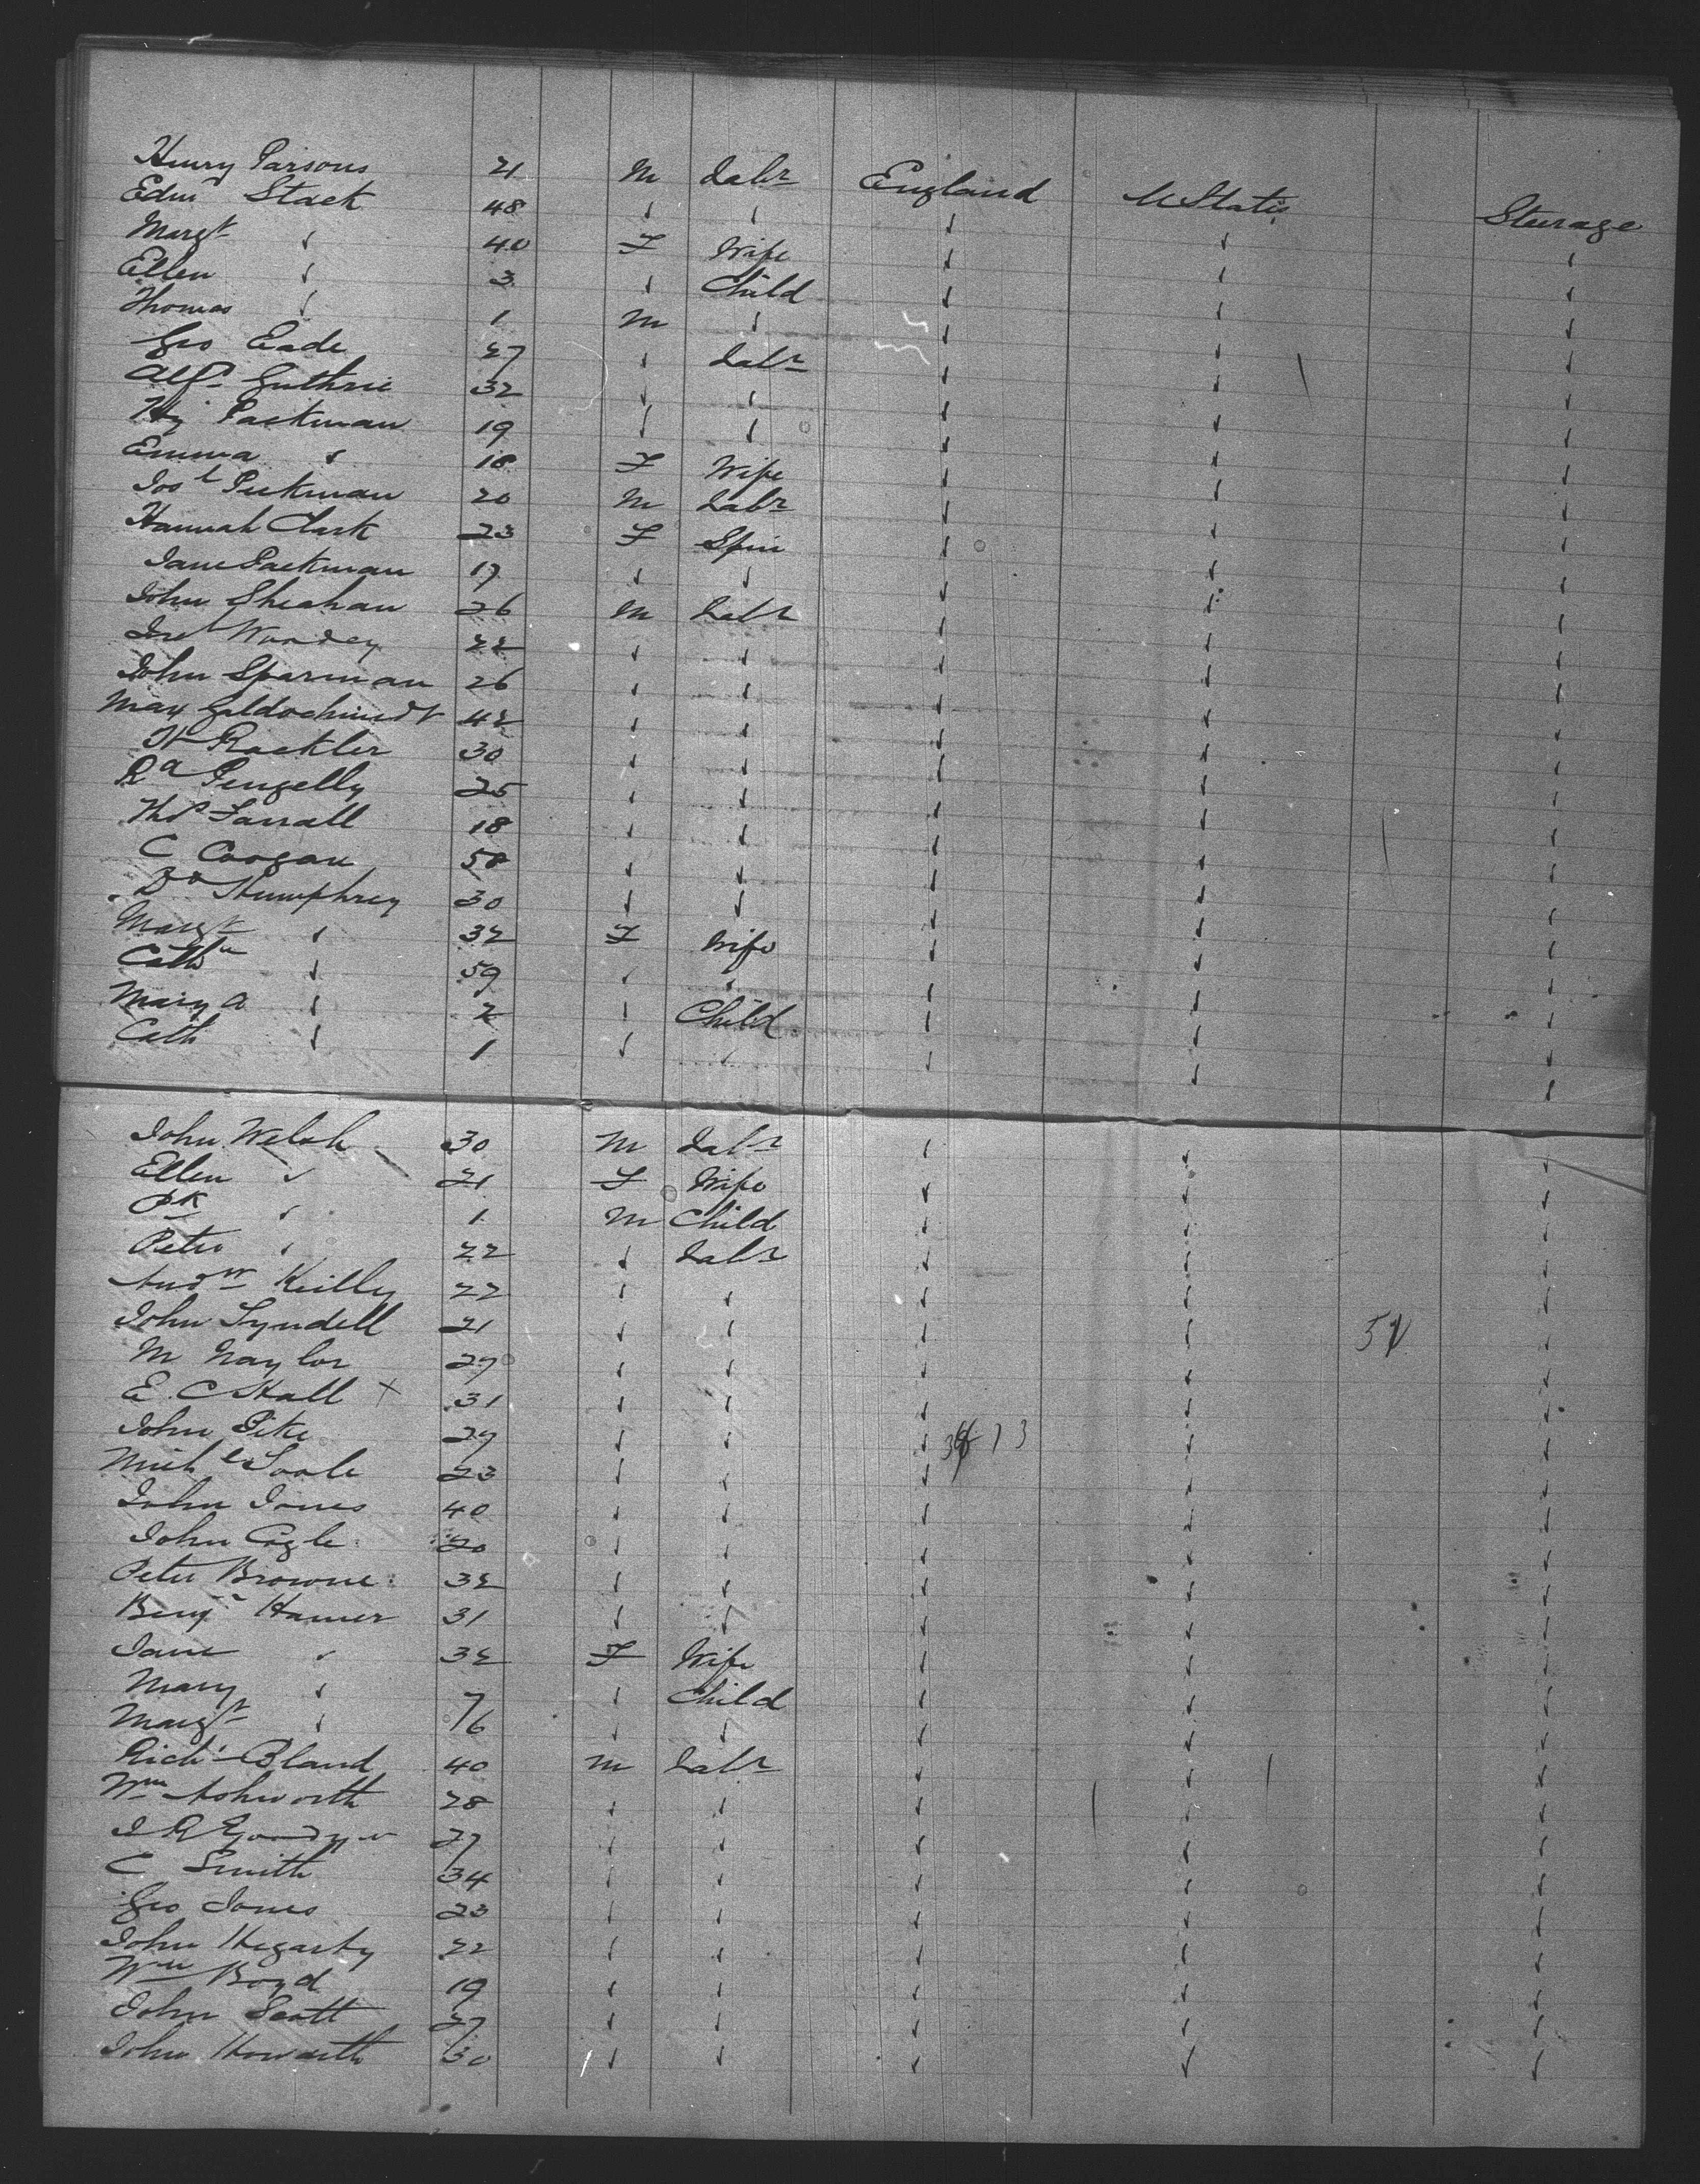 Henry Parsons 21 M Labr England U States Steerage
Edmd Stack 48 " " " " "
Margt " 40 F Wife " " "
Ellen " 3 " Child " " "
Thomas " 1 M " " " "
Geo Eade 27 " Labr " " "
Alfd Guthrie 32 " " " " "
Hy Packman 19 " " " " "
Emma " 18 F Wife " " "
Josh Peckman 20 M Labr " " "
Hannah Clark 23 F Spin " " "
Jane Packman 17 " " " " "
John Sheahan 26 M Labr " " "
22 " " " " "
John Sparman 26 " " " " "
Max Goldschmidt 42 " " " " "
H Rackler 30 " " " " "
Rd Pengelly 25 " " " " "
Thos Farrall 18 " " " " "
C Coogan 58 " " " " "
Do Humphrey 30 " " " " "
Margt " 32 F Wife " " "
Cathn " 59 " " " " "
Mary A " 2 " Child " " "
Cath " 1 " " " " "
John Welsh 30 M Labr " " "
Ellen " 21 F Wife " " "
Pk " 1 M Child " " "
Peter " 22 " Labr " " "
Andw Keilly 22 " " " " "
John Tyndell 21 " " " " "
M Naylor 27 " " " " "
E. C Hall x 31 " " " " "
John Pike 27 " " " " "
Michl Toole 23 " " " " "
John Jones 40 " " " " "
John Cogle 20 " " " " "
Peter Browne 32 " " " " "
Benjn Hamer 31 " " " " "
Jane " 32 F Wife " " "
Mary " 7 " Child " " "
Margt " 6 " " " " "
Richd Bland 40 M Labr " " "
Wm Ashworth 28 " " " " "
J R 27 " " " " "
C Smith 34 " " " " "
Geo Jones 23 " " " " "
John Hegarty 22 " " " " "
Wm Boyd 19 " " " " "
John Scott 27 " " " " "
John Howarth 30 " " " " "